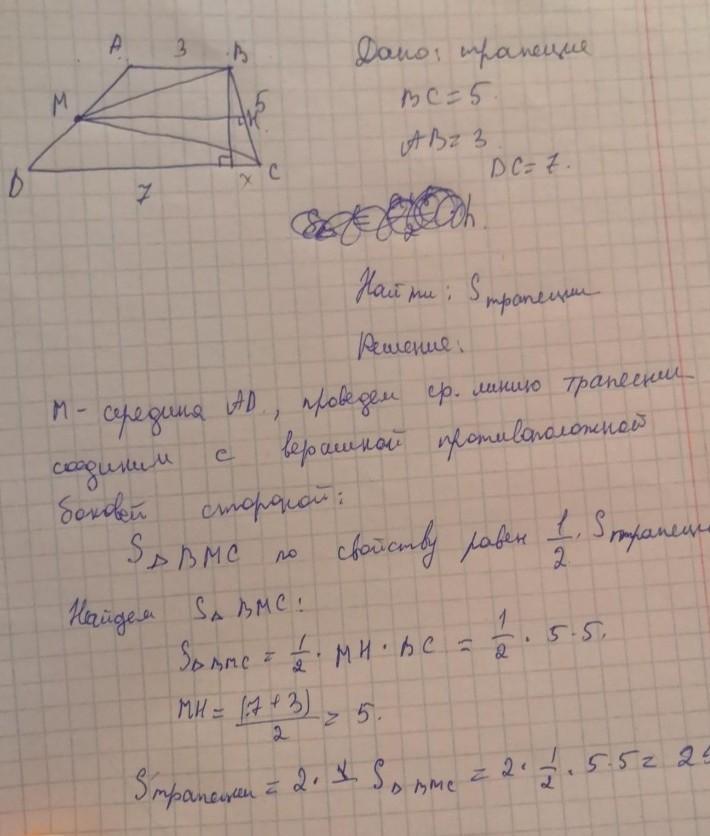 A 3 B
M 5
H
D 7 x C
Дано: трапеция
BC = 5.
AB = 3
DC = 7.
Найти: S трапеции
Решение:
M - середина AD, проведем ср. линию трапеции
соединим с вершиной противоположной
боковой стороной:
S△BMC по свойству равен 1/2 · S трапеци
Найдем S△BMC:
S△BMC = 1/2 · MH · BC = 1/2 · 5·5.
MH = (7+3)/2 = 5.
S трапеции = 2 · S△BMC = 2 · 1/2 · 5·5 = 25